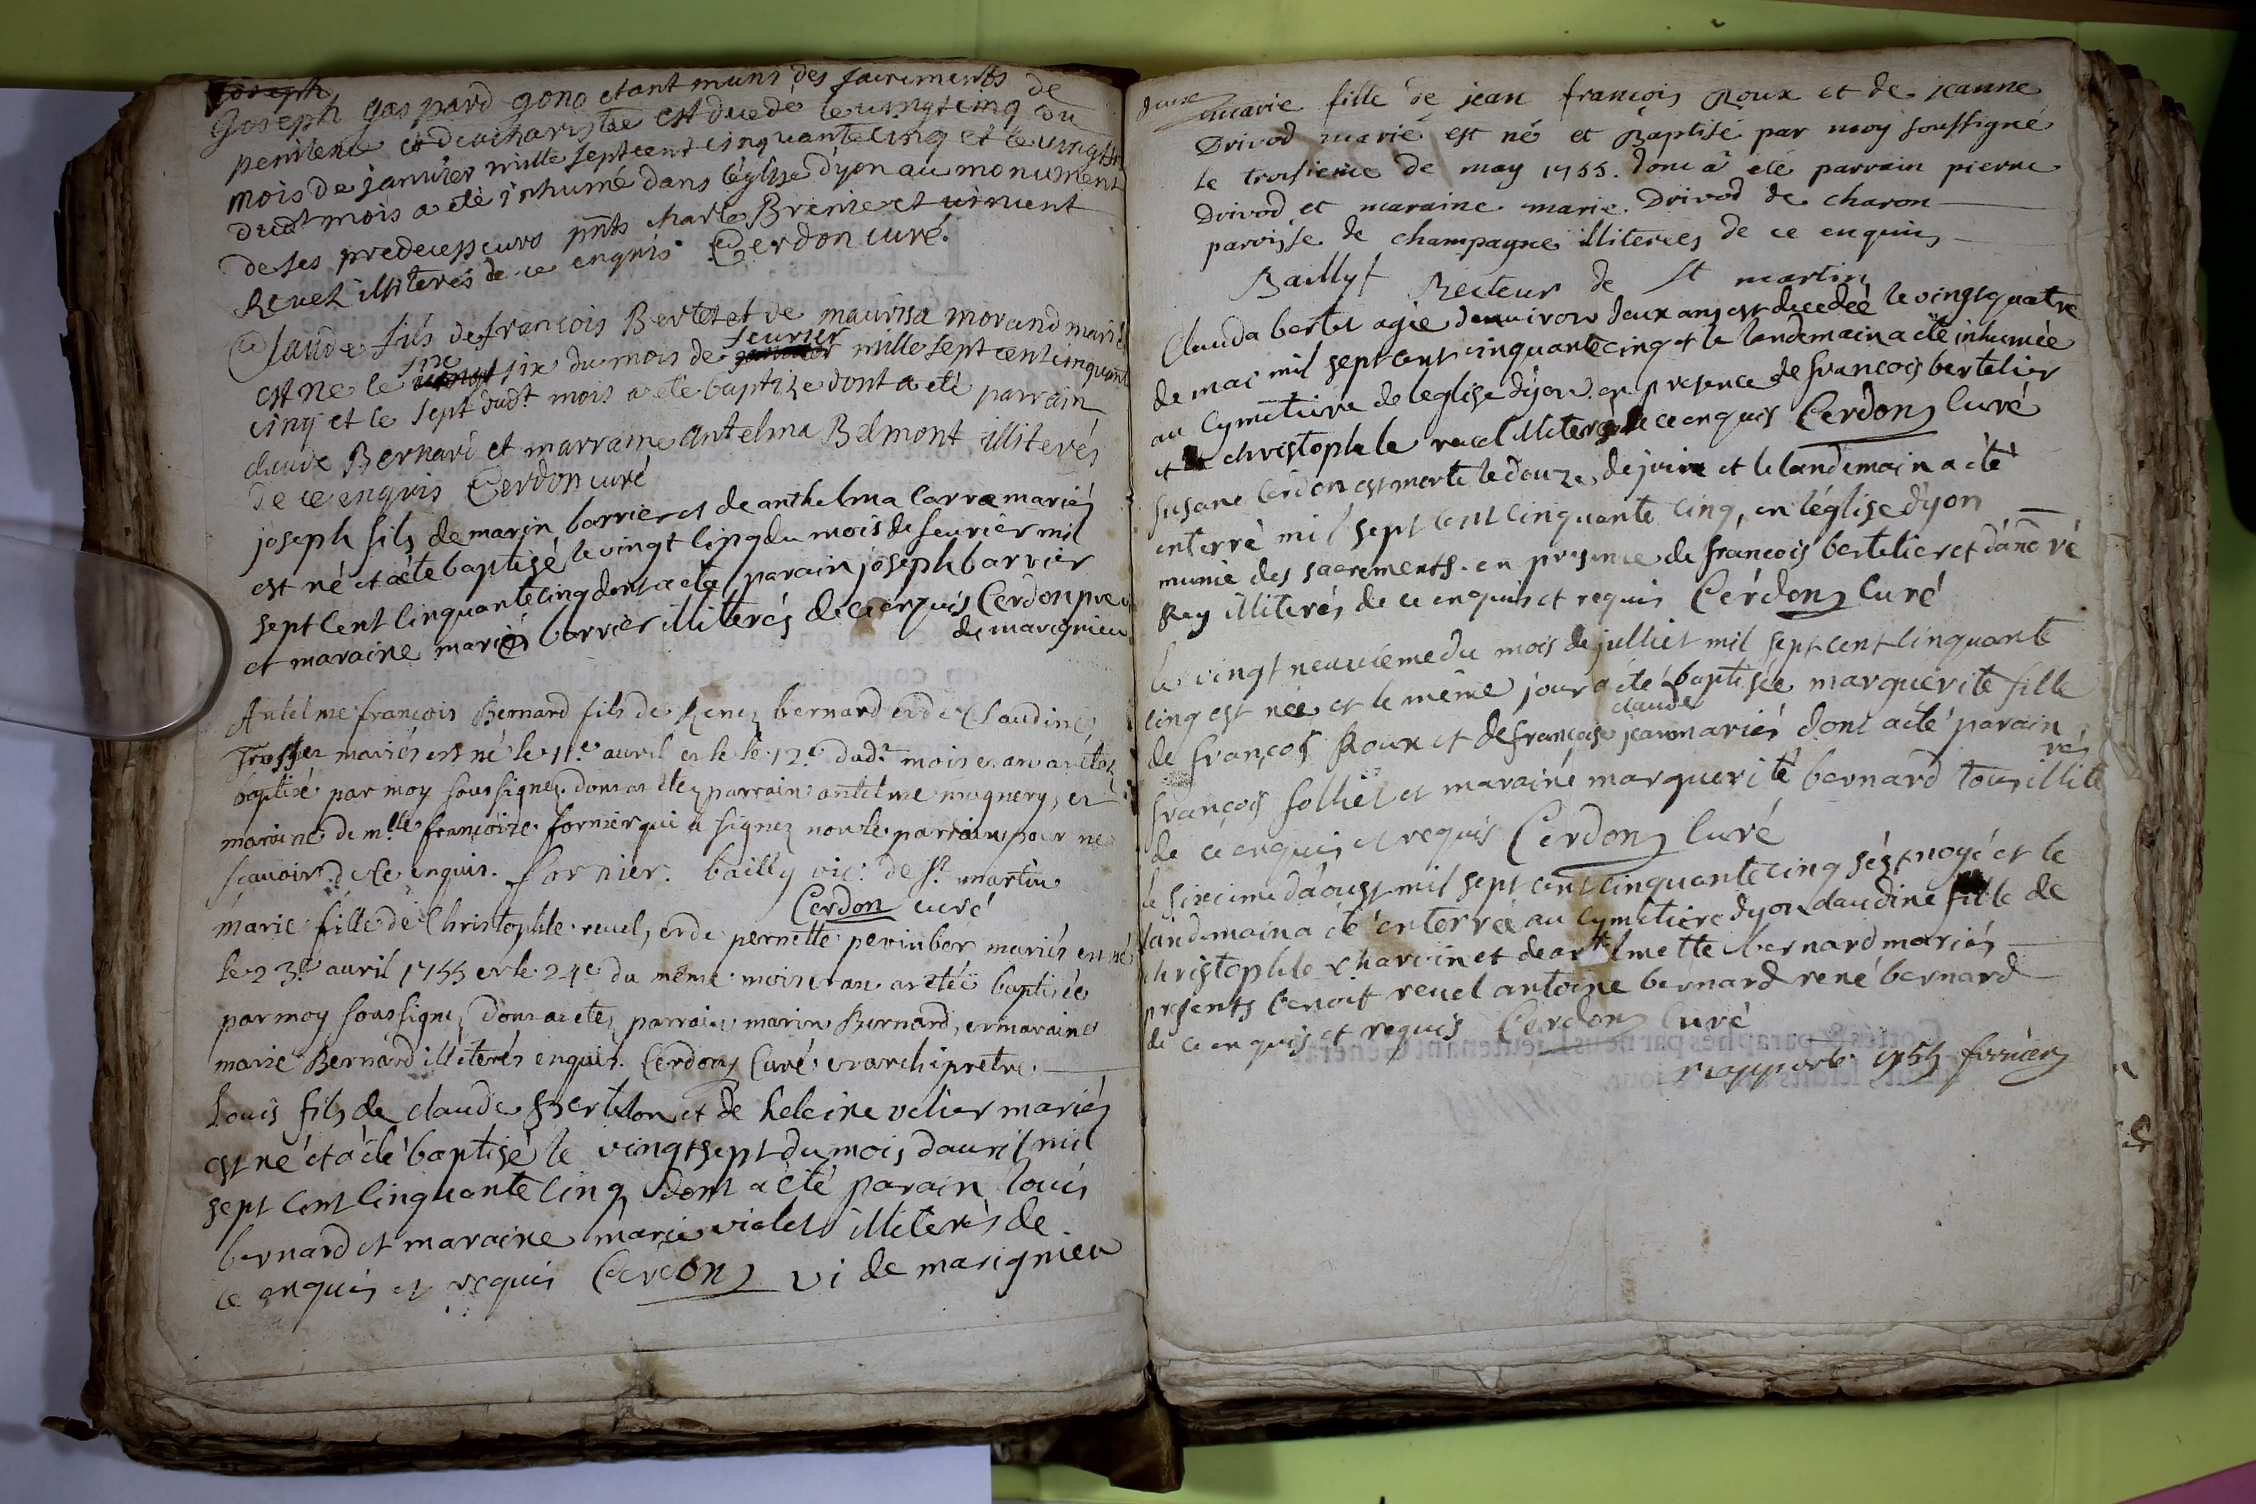 Joseph
Joseph gaspard gono etant muni des sacrements de
penitence et deucharistee est decedé le vingtcinq du
mois de janvier mille septcent cinquantecinq et le vingtsix
dudt mois a eté inhumé dans léglise dÿon au monument
de ses predecesseurs pnts charle Brenier et vincent
Revel illiterés de ce enquis Cerdon curé.
Claude fils de francois Bertet et de maurisa morand mariés
six feurier
est ne le vingt six du mois de janvier mille sept cent cinquante
cinq et le sept dudt mois a eté baptize dont a eté parrain
claude Bernard et marraine antelma Belmont illiterés
de ce enquis Cerdon curé
joseph fils de marin barrier et de anthelma Carra mariés
est né et a eté baptisé le vingt cinq du mois de feurier mil
sept cent cinquante cinq dont a eté parain joseph barrier
et maraine marie barrier illiterés de ce enquis Cerdon
de marignieu
Antelme francois Bernard fils de Renez bernard et de Claudine
mariés est né le 11e auril et le 12e dudt mois et an a eté
baptisé par moy soussignez dont a etez parrain antelme mugnery, et
maraine de mlle francoize fornier qui a signez non le parrain pour ne
scauoir de ce enquis. fornier. bailly vic: de St martin
Cerdon curé
marie fille de Christophle reuel, et de pernette mariés est né
le 23e auril 1755 et le 24e du même mois et an a etéë baptisée
par moy soussignez dont a etez parrain marin Bernard, et maraine
marie Bernard illiterés enquis. Cerdon Curé et archipretre.
Louis fils de claude Bertelon et de heleine velier mariés
est né et a eté baptisé le vingtsept du mois dauril mil
sept cent cinquante cinq dont a eté parain louis
bernard et maraine marie violet illiterés de
ce enquis et requis Cerdon vi de marignieu
marie fille de jean francois Roux et de jeanne
Drivod marié est né et Baptisé par moy soussigné
le troisieme de may 1755. dont a eté parrain pierre
Drivod et maraine marie Drivod de charon
paroisse de champagne illiterés de ce enquis
Bailly Recteur de St martin
Clauda bertet agée denuiron deux ans est decedeé le vingtquatre
de mai mil sept cent cinquante cinq et le landemain a eté inhumée
au Cymetiere de leglise dÿon en presence de francois bertelier
et christophle reuel illiterés de ce enquis Cerdon Curé
Susane Cerdon est morte le douze de juin et le landemain a eté
enterré mil sept cent cinquante cinq, en l'église dÿon
munie des sacrements. en presence de francois bertelier et dandré
Rey illiterés de ce enquis et requis Cerdon Curé
le vingt neuuieme du mois de julliet mil sept cent cinquante
cinq est née et le même jour a eté baptisée marguerite fille
claude
de françois Roux et de francoise jean mariés dont a eté parain
françois folliet et maraine marguerite bernard tous illite
rés
de ce enquis et requis Cerdon Curé
le sixieme d'aoust mil sept cent cinquante cinq s'est noyé et le
landemain a eté enterrée au Cymetiere dÿon claudine fille de
christophle charvin et de anthelmette bernard mariés
presents benoit reuel antoine bernard rené bernard
de ce enquis et requis Cerdon Curé
rapporté 1755 fornier